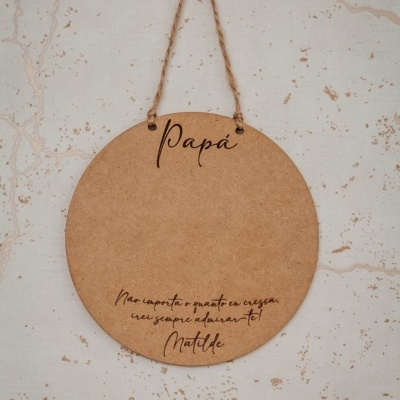 Papá
Não importa o quanto eu cresça,
irei sempre admirar-te!
Matilde